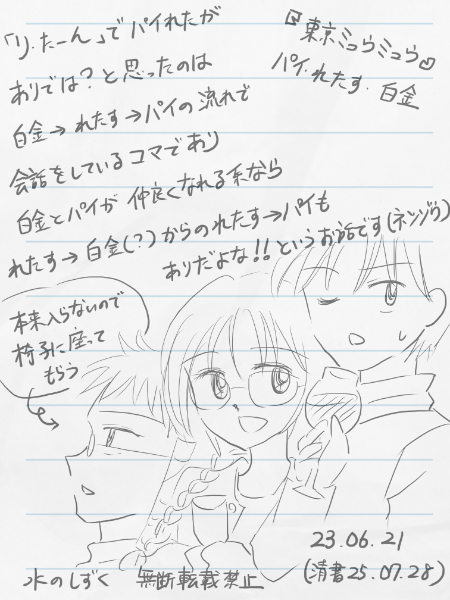 「り・たーん」でパイれたが
ありでは？と思ったのは
白金→れたす→パイの流れで
会話をしているコマであり
白金とパイが仲良くなれる系なら
れたす→白金(?)からのれたす→パイも
ありだよな!!というお話です(ネンゾウ)
『東京ミュウミュウ』
パイ・れたす・白金
本来入らないので
椅子に座って
もらう
23.06.21
(清書25.07.28)
水のしずく 無断転載禁止